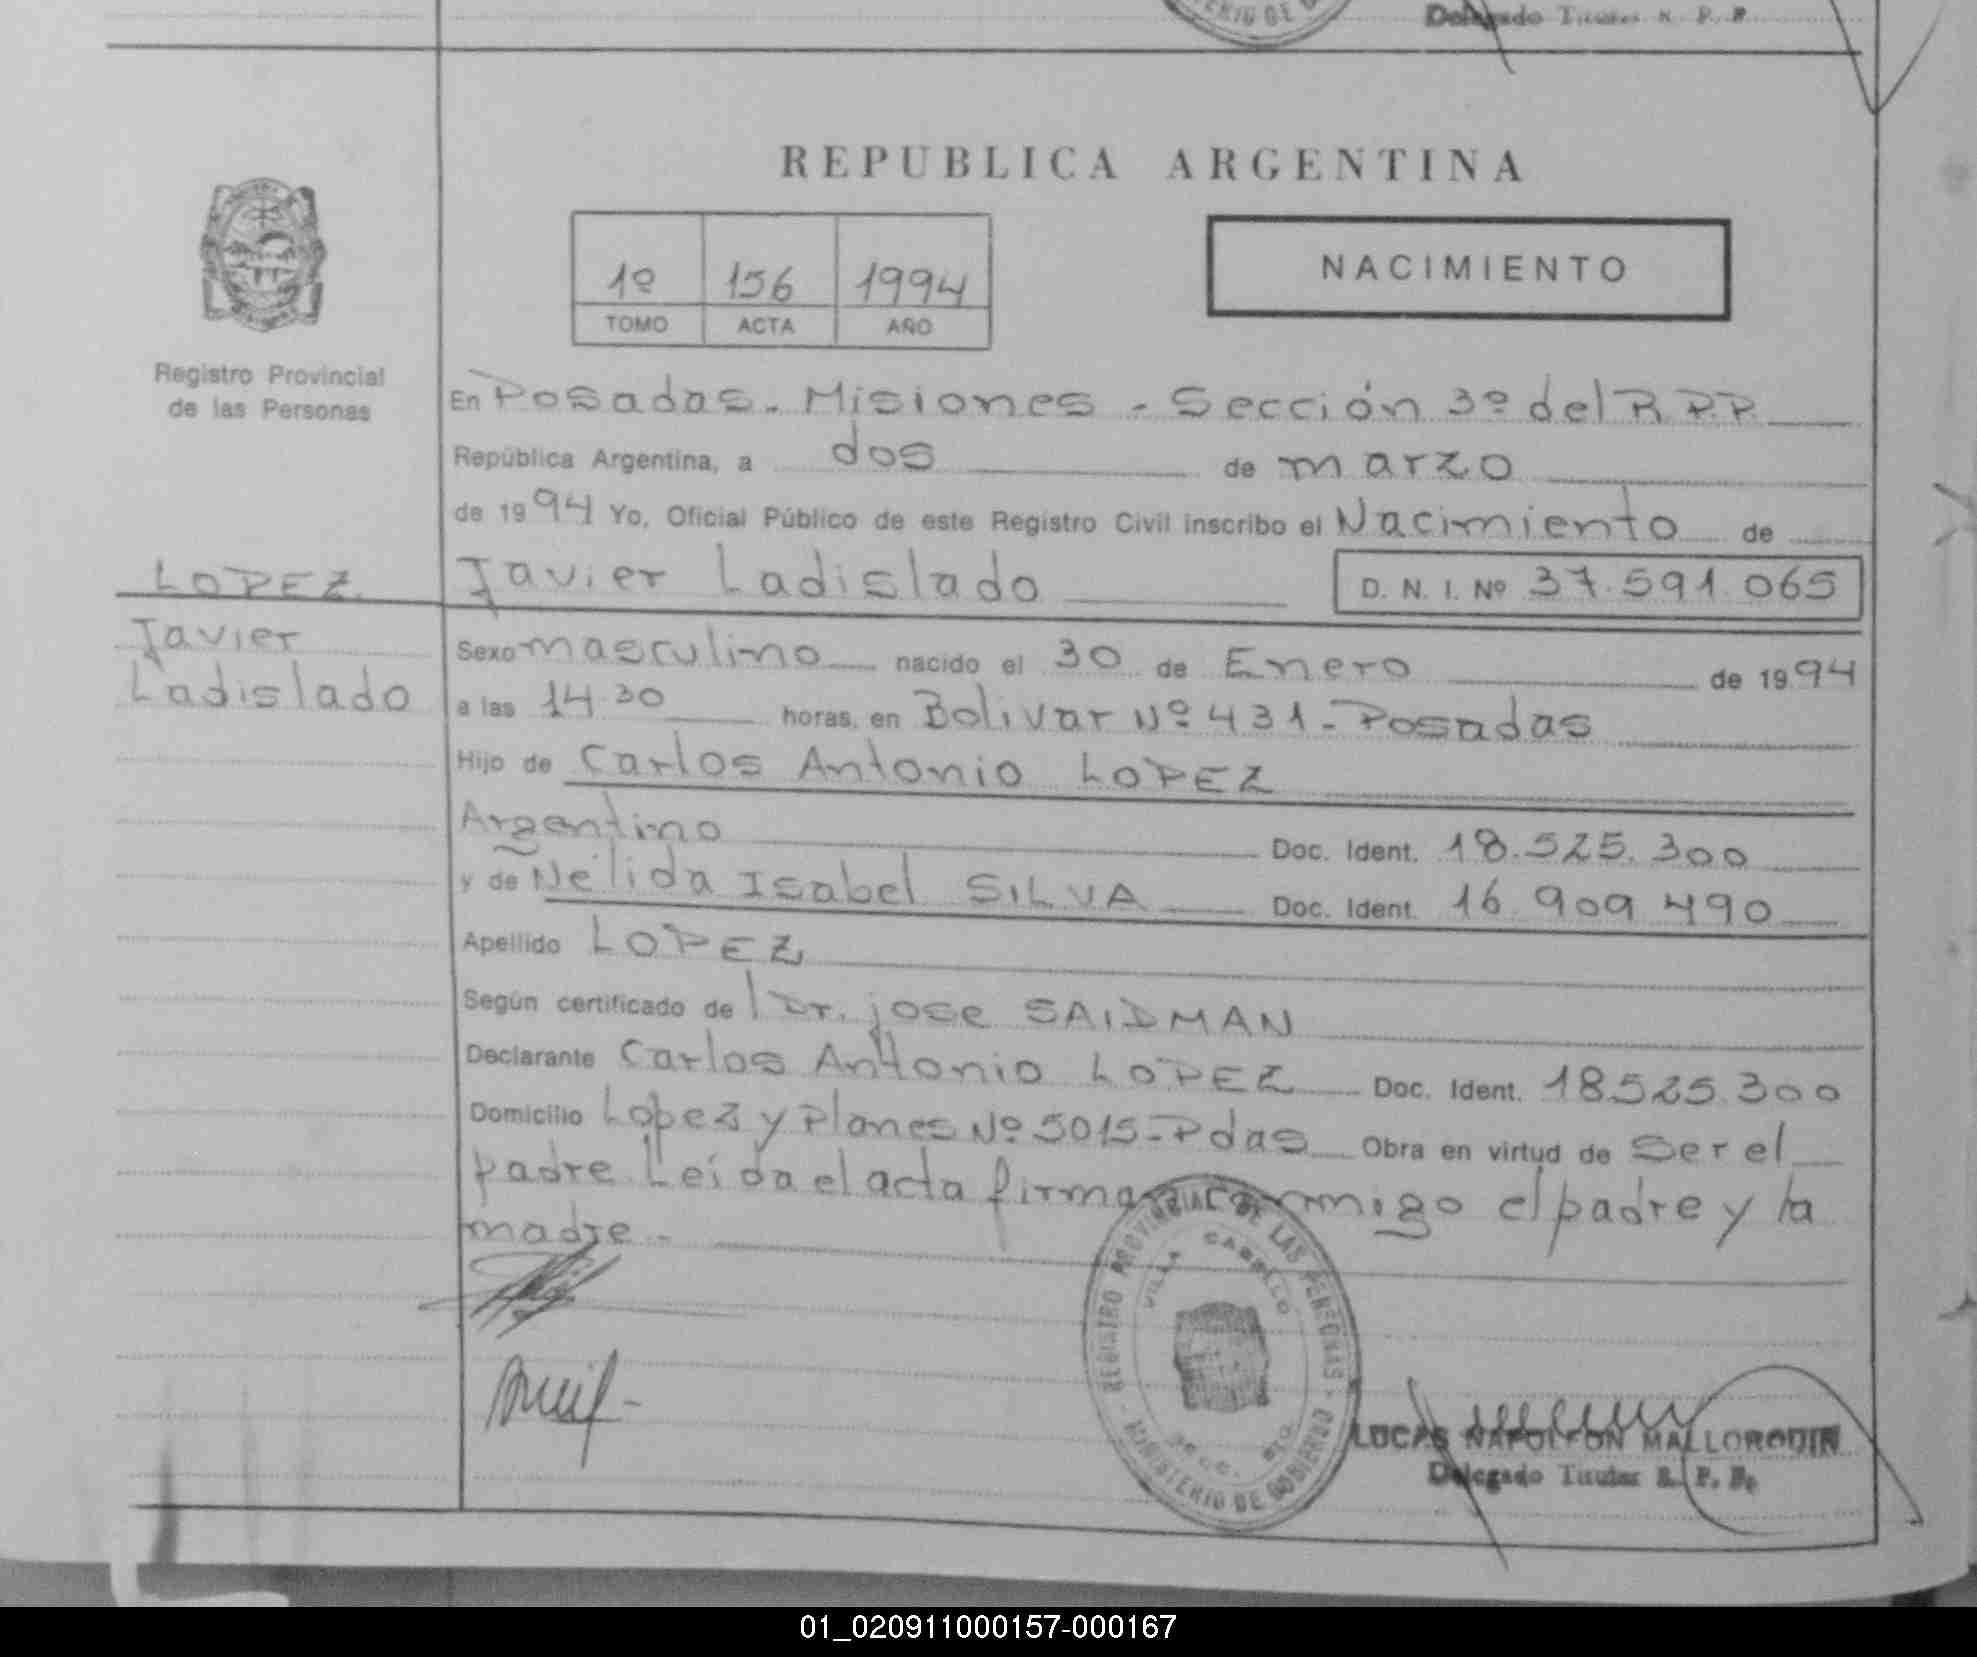 Delegado Titular R. P. P.
REPUBLICA ARGENTINA
1º 156 1994
TOMO ACTA AÑO
NACIMIENTO
Registro Provincial
de las Personas
En Posadas - Misiones - Sección 3º del R.P.P.
República Argentina, a dos de marzo
de 1994 Yo, Oficial Público de este Registro Civil inscribo el Nacimiento de
LOPEZ
Javier Ladislado D. N. I. Nº 37.591.065
Javier
Ladislado
Sexo masculino nacido el 30 de Enero de 1994
a las 14 30 horas, en Bolivar Nº 431 - Posadas
Hijo de Carlos Antonio LOPEZ
Argentino Doc. Ident. 18.525.300
y de Nélida Isabel SILVA Doc. Ident. 16 909 490
Apellido LOPEZ
Según certificado del Dr. jose SAIDMAN
Declarante Carlos Antonio LOPEZ Doc. Ident. 18.525.300
Domicilio Lopez y Planes Nº 5015 - Pdas Obra en virtud de Ser el
padre. Leída el acta firma conmigo el padre y la
madre. -
REGISTRO PROVINCIAL DE LAS PERSONAS - MINISTERIO DE GOBIERNO -
VILLA CABELLO
LUCAS NAPOLEON MALLORQUIN
Delegado Titular R. P. P.
01_020911000157-000167